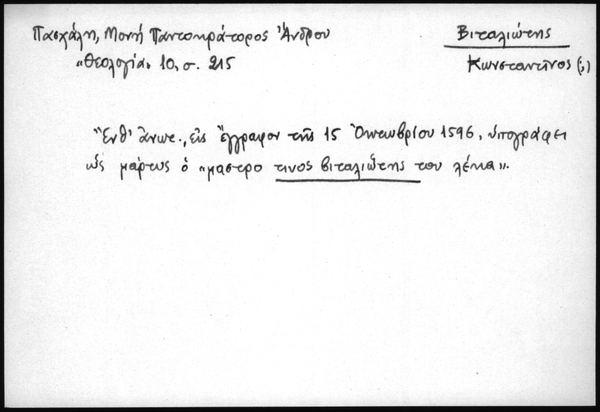 Πασχάλη, Μονή Παντοκράτορος Ἄνδρου
Βιταλιώτης
"Θεολογία" 10, σ. 215
Κωνσταντῖνος (;)
Ἔνθ' ἄνωτ., εἰς ἔγγραφον τῆς 15 Ὀκτωβρίου 1596, ὑπογράφει
ὡς μάρτυς ὁ "μαστρο τινος βιταλιώτης του λέκα".